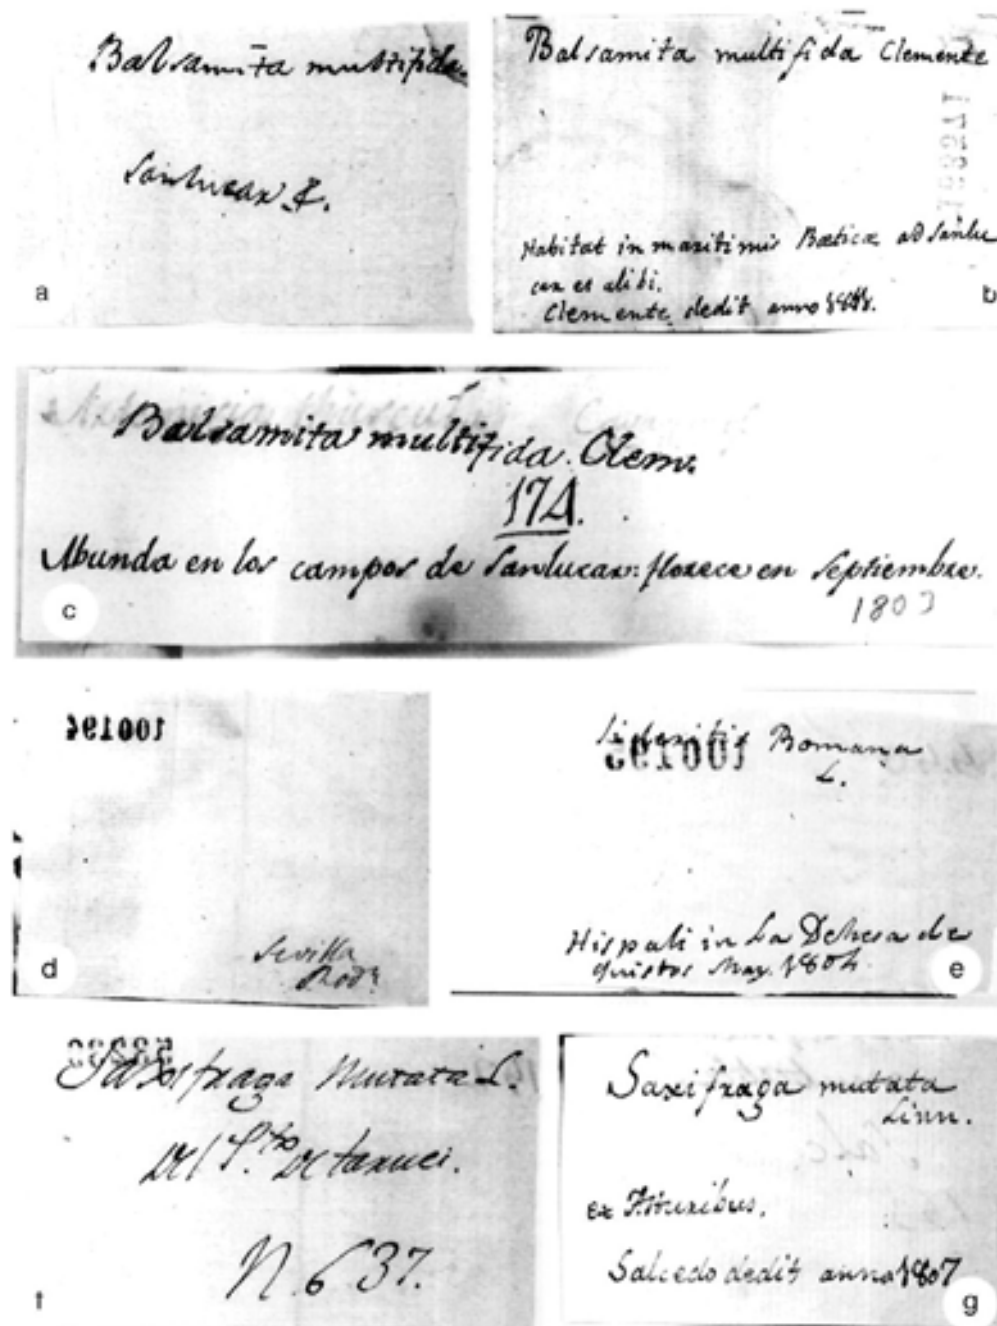 Balsamita multifida
Sanlucar &.
a
Balsamita multifida Clemente
Habitat in maritimis Bœticæ ad Sanlu
car et alibi.
Clemente dedit anno
b
Balsamita multifida. Clem.
174.
Abunda en los campos de Sanlucar: florece en Septiembre.
1803
c
100194
Sevilla
Rodz
d
100195
Sideritis Romana
L.
Hispali in La Dehesa de
May. 1804
e
Saxosfraga Mutata L.
Del P.to De taruei.
N. 637.
f
Saxifraga mutata
Linn.
ex Asturibus.
Salcedo dedit anno 1807
g